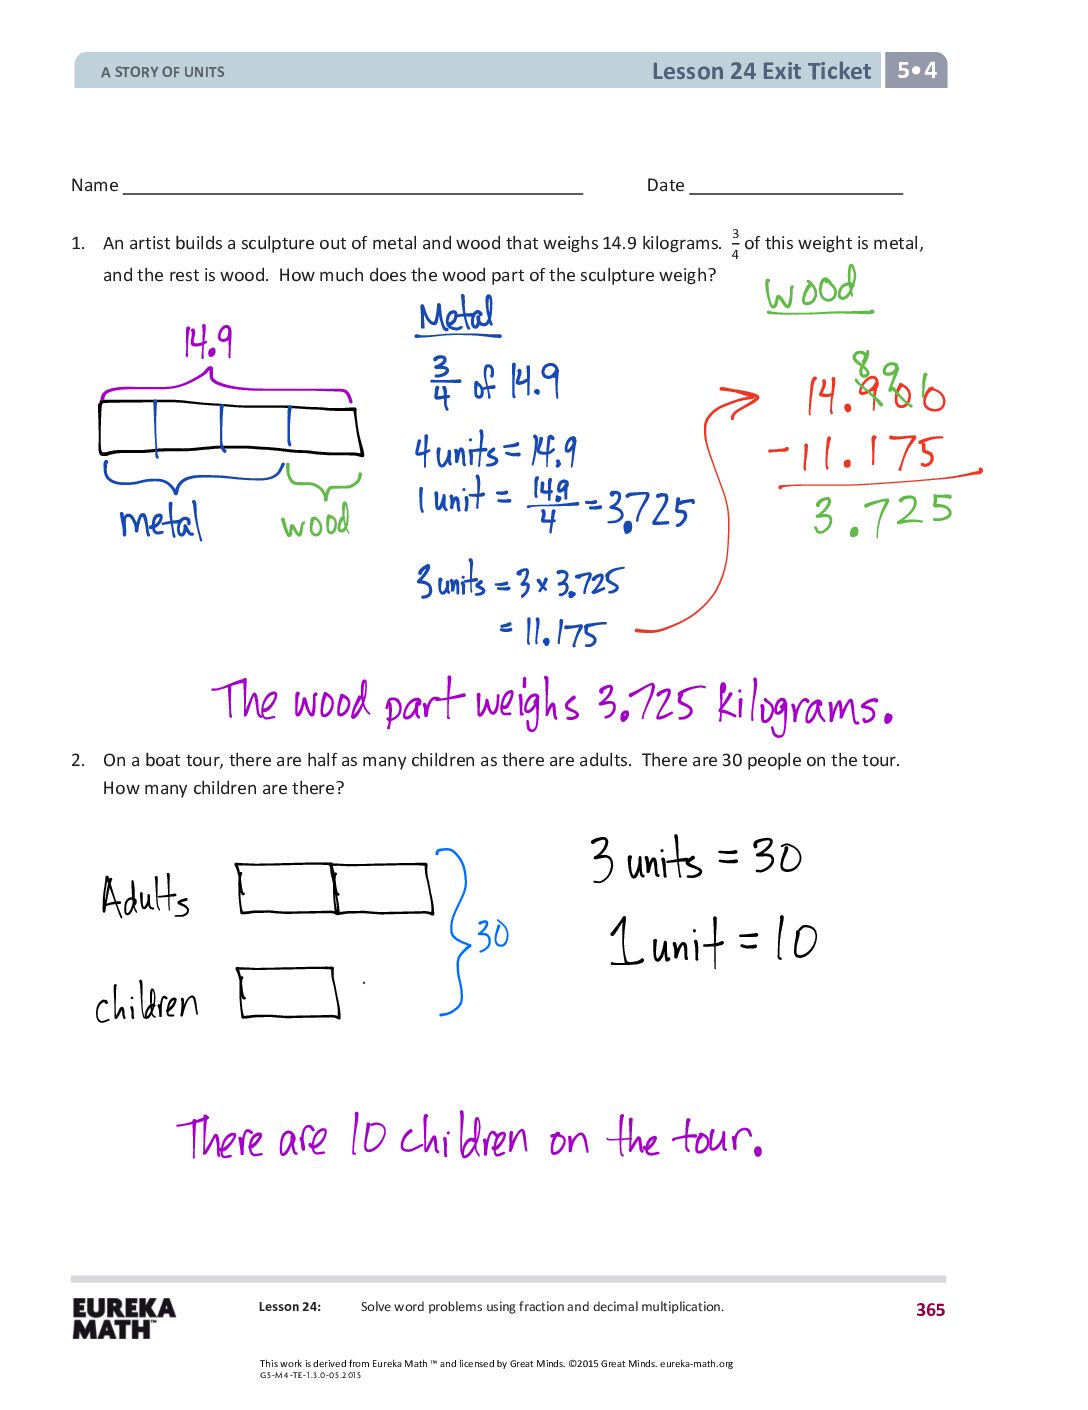 A STORY OF UNITS
Lesson 24 Exit Ticket 5•4
Name
Date
1. An artist builds a sculpture out of metal and wood that weighs 14.9 kilograms. 3/4 of this weight is metal,
and the rest is wood. How much does the wood part of the sculpture weigh?
14.9
metal
wood
Metal
3/4 of 14.9
4 units = 14.9
1 unit = 14.9/4 = 3.725
3 units = 3 x 3.725
= 11.175
Wood
8 9 1
14.900
-11.175
3.725
The wood part weighs 3.725 kilograms.
2. On a boat tour, there are half as many children as there are adults. There are 30 people on the tour.
How many children are there?
Adults
children
30
3 units = 30
1 unit = 10
There are 10 children on the tour.
EUREKA
MATH™
Lesson 24: Solve word problems using fraction and decimal multiplication.
365
This work is derived from Eureka Math ™ and licensed by Great Minds. ©2015 Great Minds. eureka-math.org
G5-M4-TE-1.3.0-05.2015